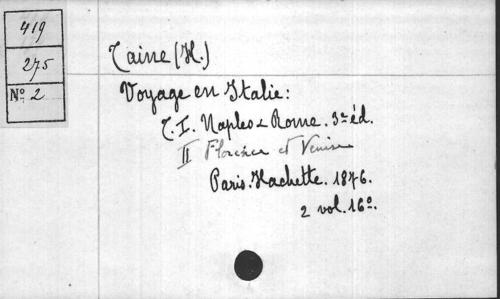 419
275
Nº 2
Taine (H.)
Voyage en Italie:
T. I. Naples & Rome. 3e éd.
II Florence et Venise
Paris. Hachette. 1876.
2 vol. 16º.